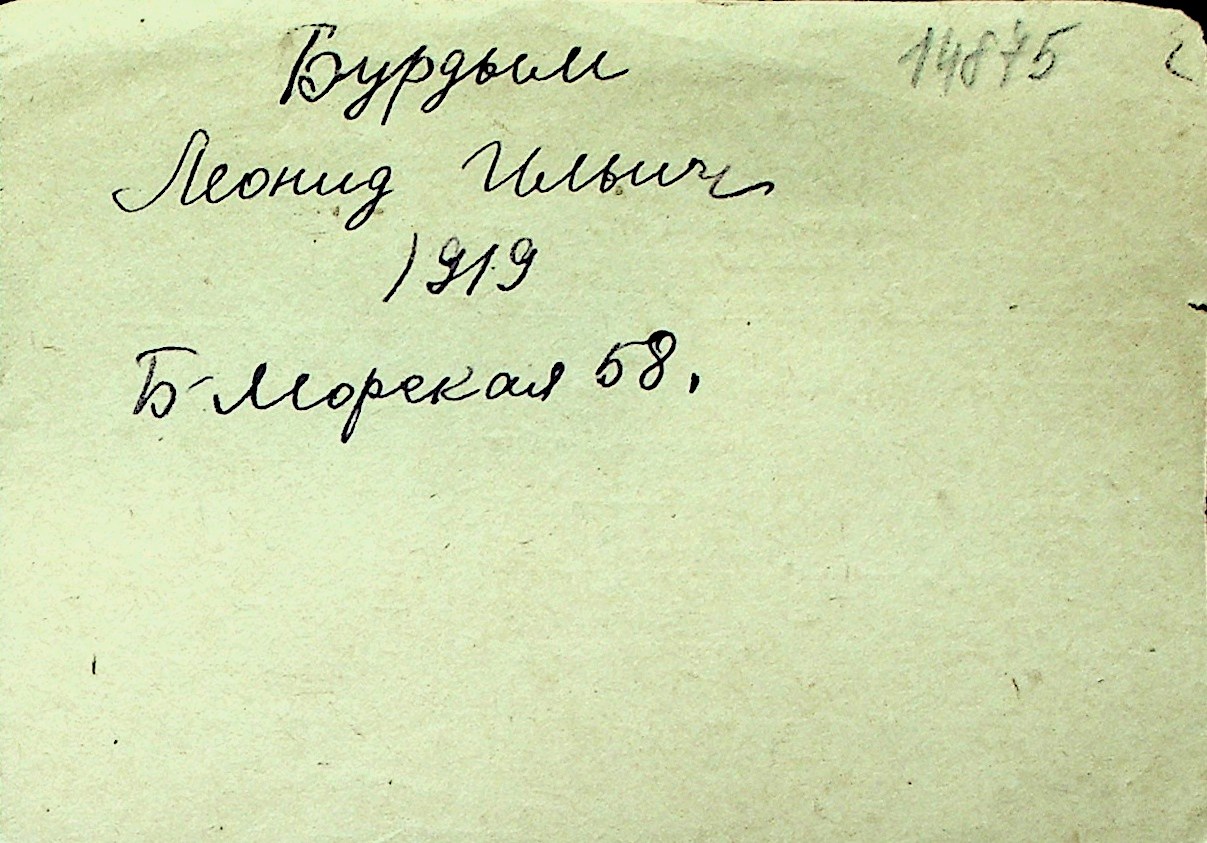 Бурдым 14875
Леонид Ильич
1919
Б-Морская 58.